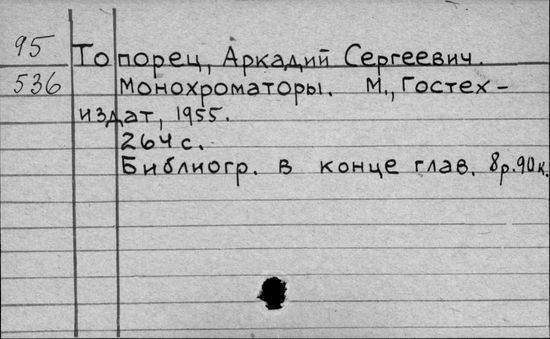 95
536
Топорец, Аркадий Сергеевич.
Монохроматоры. М., Гостех-
издат, 1955.
264 с.
Библиогр. в конце глав. 8р.90к.